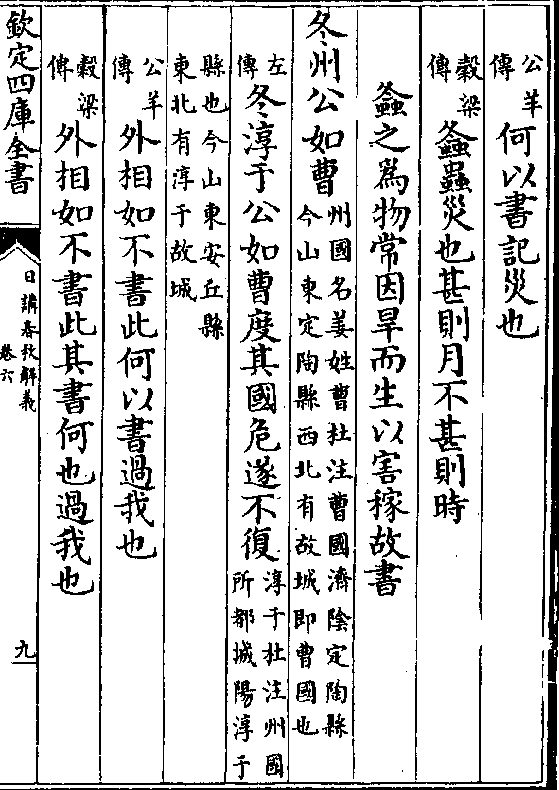 公羊傳何以書記災也
穀梁傳螽蟲災也甚則月不甚則時
螽之為物常因旱而生以害稼故書
冬州公如曹州國名姜姓曹杜注曹國濟陰定陶縣今山東定陶縣西北有故城即曹國也
左傳冬淳于公如曹度其國危遂不復淳于杜注州國所都城陽淳于
縣也今山東安丘縣東北有淳于故城
公羊傳外相如不書此何以書過我也
穀梁傳外相如不書此其書何也過我也
欽定四庫全書
日講春秋解義
卷六
九